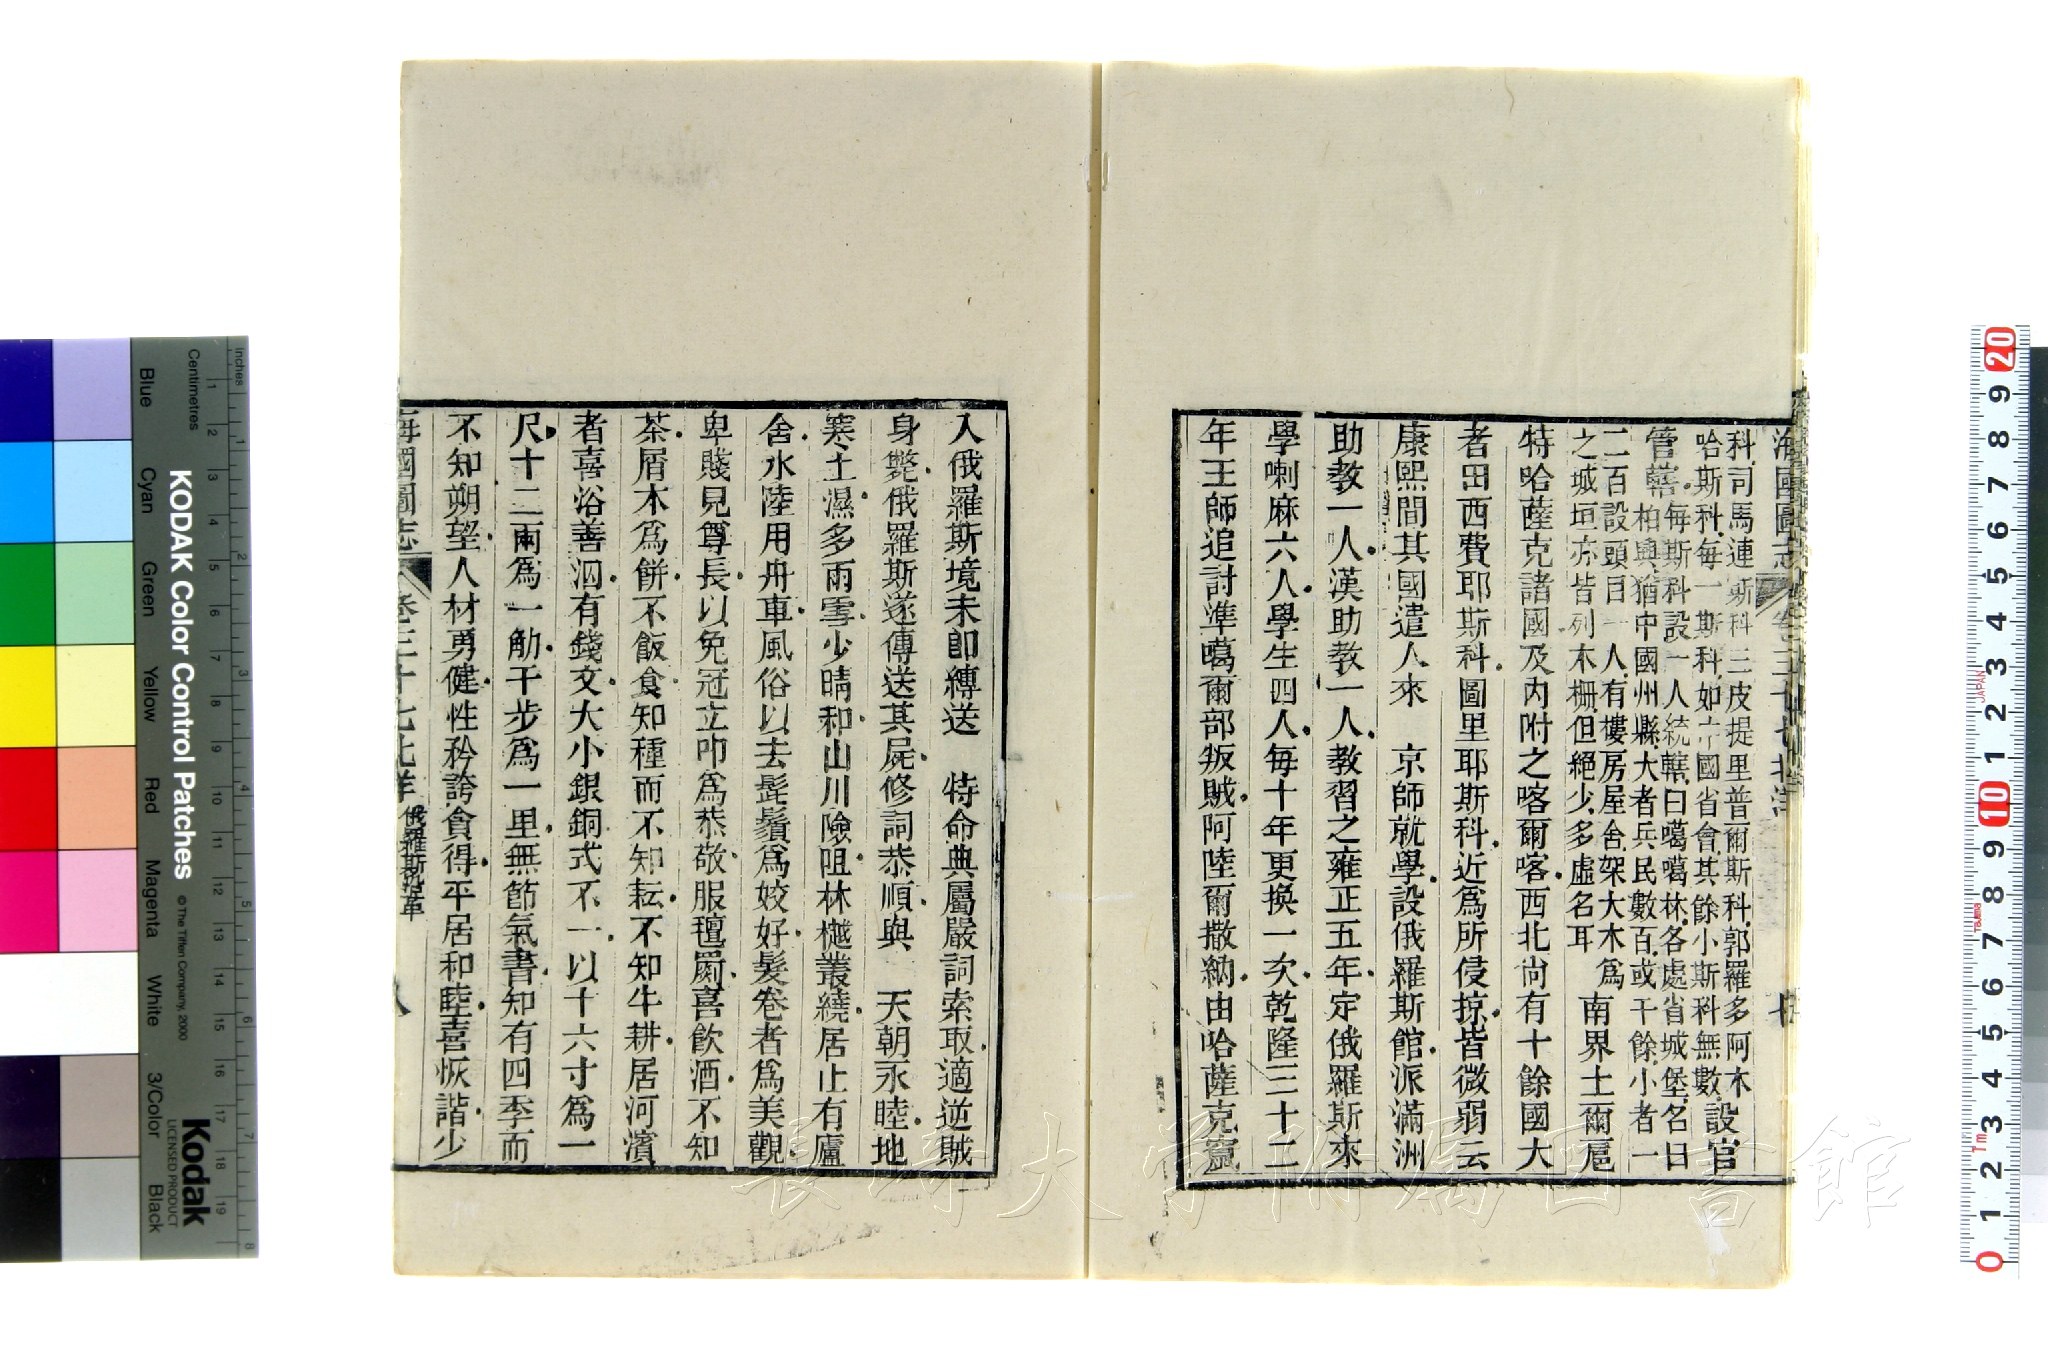 海國圖志 卷三十七 北洋 七
科司馬連斯科三皮提里普爾斯科郭羅多阿木
哈斯科每一斯科如中國省會其餘小斯科無數設官
管轄每斯科設一人統轄曰噶噶林各處省城堡名曰
柏興猶中國州縣大者兵民數百或千餘小者一
二百設頭目一人有樓房屋舍架大木為
之城垣亦皆列木柵但絕少多虛名耳
南界土爾扈
特哈薩克諸國及內附之喀爾喀西北尚有十餘國大
者田西費耶斯科圖里耶斯科近為所侵掠皆微弱云
康熙間其國遣人來 京師就學設俄羅斯館派滿洲
助教一人漢助教一人教習之雍正五年定俄羅斯來
學喇麻六人學生四人每十年更換一次乾隆二十二
年王師追討準噶爾部叛賊阿陸爾撒納由哈薩克竄
入俄羅斯境未卽縳送 特命典屬嚴詞索取適逆賊
身斃俄羅斯遂傳送其屍修詞恭順與 天朝永睦地
寒土濕多雨雪少晴和山川險阻林樾叢繞居止有廬
舍水陸用舟車風俗以去髭鬚為姣好髮卷者為美觀
卑賤見尊長以免冠立叩為恭敬服氊罽喜飲酒不知
茶屑木為餅不飯食知種而不知耘不知牛耕居河濱
者喜浴善泅有錢文大小銀銅式不一以十六寸為一
尺十二兩為一觔千步為一里無節氣書知有四季而
不知朔望人材勇健性矜誇貪得平居和睦喜恢諧少
海國圖志 卷三十七 北洋 俄羅斯沿革 八
長崎大学附属図書館
KODAK Color Control Patches
© The Tiffen Company, 2000
Kodak
LICENSED PRODUCT
Inches
Centimetres
Blue Cyan Green Yellow Red Magenta White 3/Color Black
1 2 3 4 5 6 7 8
1 2 3 4 5 6 7 8 9 10 11 12 13 14 15 16 17 18 19
20 9 8 7 6 5 4 3 2 1 10 9 8 7 6 5 4 3 2 1 0
JAPAN